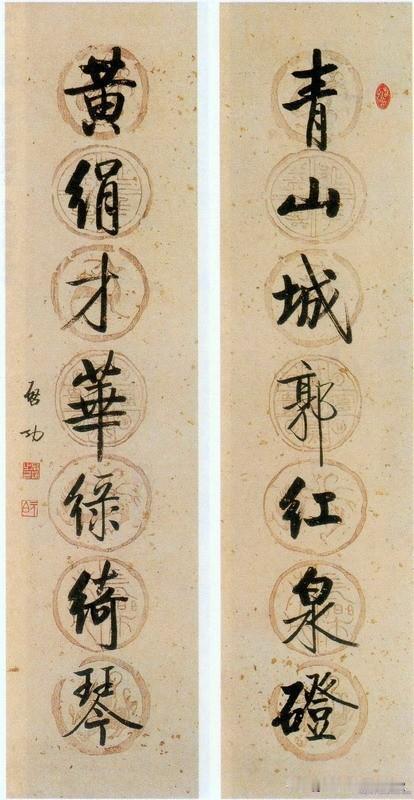 青山城郭红泉磴
黄绢才華绿綺琴
启功